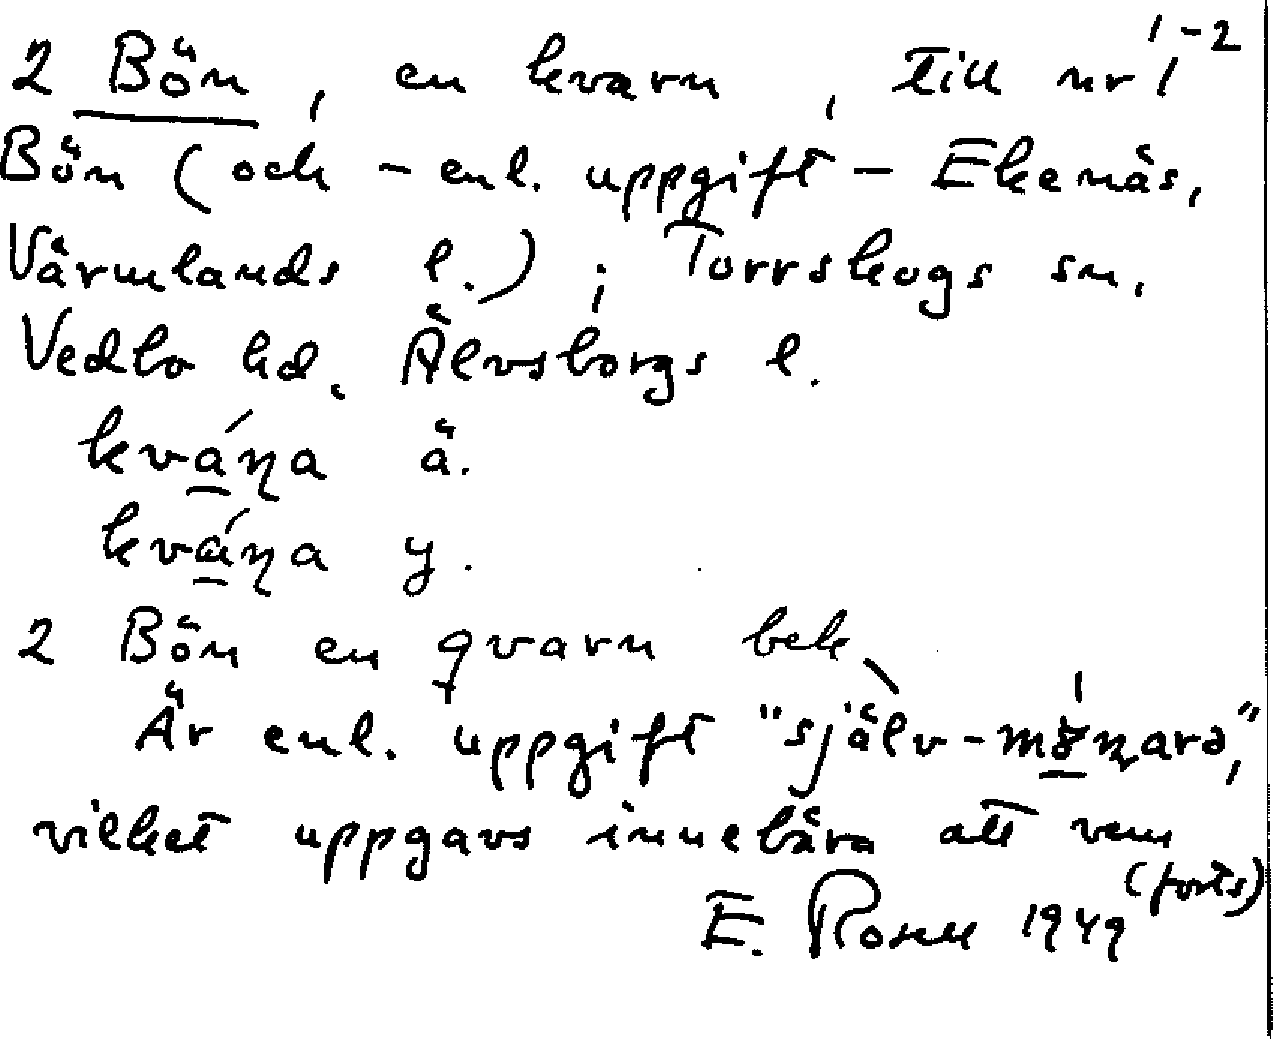 2 Bön, en kvarn, till nr 1 1-2
Bön (och - enl. uppgift - Ekenäs,
Värmlands l.); Torrskogs sn.
Vedbo hd. Älvsborgs l.
kváɳa ä.
kváɳa y.
2 Bön en qvarn bek.
Är enl. uppgift "själv-
vilket uppgavs innebära att vem
(forts)
E. Rosell 1949